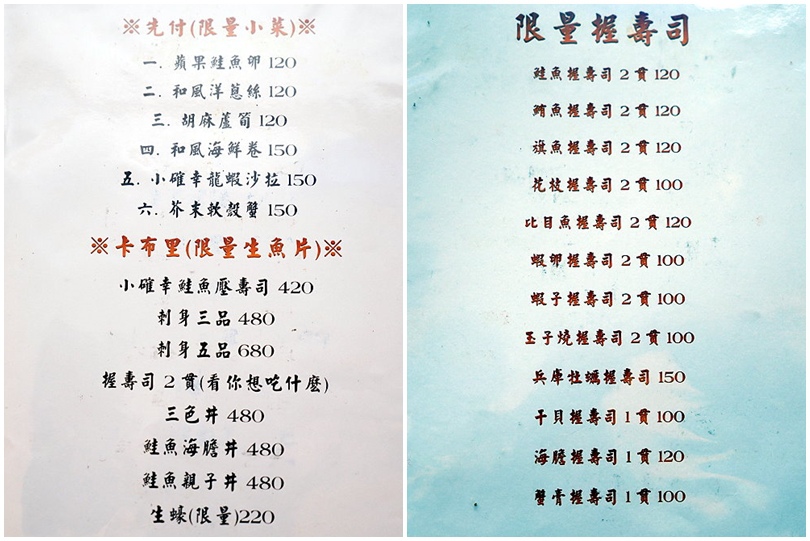 ※先付(限量小菜)※
一. 蘋果鮭魚卵 120
二. 和風洋蔥絲 120
三. 胡麻蘆筍 120
四. 和風海鮮卷 150
五. 小確幸龍蝦沙拉 150
六. 芥末軟殼蟹 150
※卡布里(限量生魚片)※
小確幸鮭魚壓壽司 420
刺身三品 480
刺身五品 680
握壽司 2 貫(看你想吃什麼)
三色丼 480
鮭魚海膽丼 480
鮭魚親子丼 480
生蠔(限量)220
限量握壽司
鮭魚握壽司 2 貫 120
鮪魚握壽司 2 貫 120
旗魚握壽司 2 貫 120
花枝握壽司 2 貫 100
比目魚握壽司 2 貫 120
蝦卵握壽司 2 貫 100
蝦子握壽司 2 貫 100
玉子燒握壽司 2 貫 100
兵庫牡蠣握壽司 150
干貝握壽司 1 貫 100
海膽握壽司 1 貫 120
蟹膏握壽司 1 貫 100